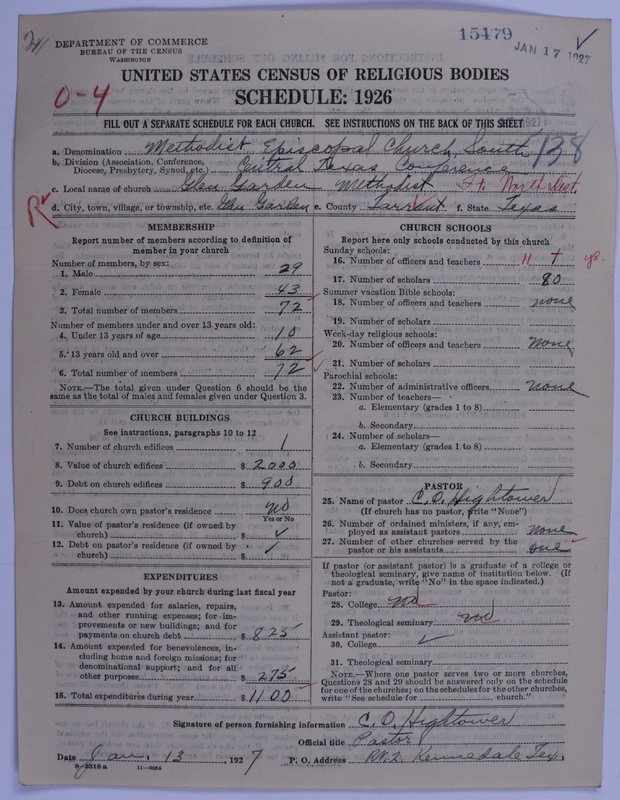 241
DEPARTMENT OF COMMERCE
BUREAU OF THE CENSUS
WASHINGTON
15479
JAN 17 1927
UNITED STATES CENSUS OF RELIGIOUS BODIES
SCHEDULE: 1926
0-4
FILL OUT A SEPARATE SCHEDULE FOR EACH CHURCH. SEE INSTRUCTIONS ON THE BACK OF THIS SHEET
a. Denomination Methodist Episcopal Church, South
138
b. Division (Association, Conference, Diocese, Presbytery, Synod, etc.) Central Texas Conference
c. Local name of church Glen Garden Methodist Ft. Worth Dist.
R
d. City, town, village, or township, etc. Glen Garden e. County Tarrant f. State Texas
MEMBERSHIP
Report number of members according to definition of
member in your church
Number of members, by sex:
1. Male 29
2. Female 43
3. Total number of members 72
Number of members under and over 13 years old:
4. Under 13 years of age 10
5. 13 years old and over 62
6. Total number of members 72
NOTE.—The total given under Question 6 should be the
same as the total of males and females given under Question 3.
CHURCH BUILDINGS
See instructions, paragraphs 10 to 12
7. Number of church edifices 1
8. Value of church edifices $ 2000
9. Debt on church edifices $ 900
10. Does church own pastor's residence no
Yes or No
11. Value of pastor's residence (if owned by
church) $
12. Debt on pastor's residence (if owned by
church) $
EXPENDITURES
Amount expended by your church during last fiscal year
13. Amount expended for salaries, repairs,
and other running expenses; for im-
provements or new buildings; and for
payments on church debt $ 825
14. Amount expended for benevolences, in-
cluding home and foreign missions; for
denominational support; and for all
other purposes $ 275
15. Total expenditures during year $ 1100
CHURCH SCHOOLS
Report here only schools conducted by this church
Sunday schools:
16. Number of officers and teachers 11
17. Number of scholars 80
Summer vacation Bible schools:
18. Number of officers and teachers none
19. Number of scholars
Week-day religious schools:
20. Number of officers and teachers None
21. Number of scholars
Parochial schools:
22. Number of administrative officers None
23. Number of teachers—
a. Elementary (grades 1 to 8)
b. Secondary
24. Number of scholars—
a. Elementary (grades 1 to 8)
b. Secondary
PASTOR
25. Name of pastor C. O. Hightower
(If church has no pastor, write "None")
26. Number of ordained ministers, if any, em-
ployed as assistant pastors None
27. Number of other churches served by the
pastor or his assistants one
If pastor (or assistant pastor) is a graduate of a college or
theological seminary, give name of institution below. (If
not a graduate, write "No" in the space indicated.)
Pastor:
28. College no
29. Theological seminary no
Assistant pastor:
30. College
31. Theological seminary
NOTE.—Where one pastor serves two or more churches,
Questions 28 and 29 should be answered only on the schedule
for one of the churches; on the schedules for the other churches,
write "See schedule for church."
Signature of person furnishing information C. O. Hightower
Official title Pastor
Date Jan. 13, 1927 P. O. Address Rt. 2. Kennedale Tex.
8-2818 a 11-9054